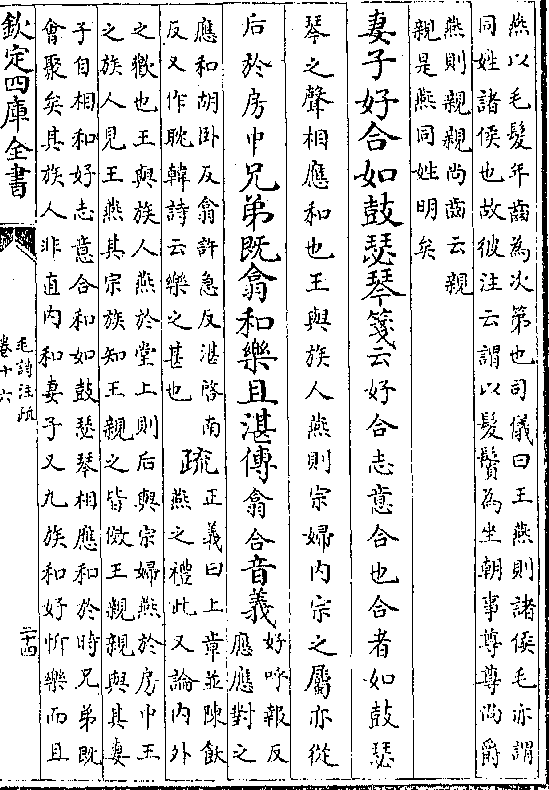 燕以毛髮年齒為次第也司儀曰王燕則諸侯毛亦謂
同姓諸侯也故彼注云謂以髮鬢為坐朝事尊尊尚爵
燕則親親尚齒云親
親是燕同姓明矣
妻子好合如鼓瑟琴箋云好合志意合也合者如鼓瑟
琴之聲相應和也王與族人燕則宗婦内宗之屬亦從
后於房中兄弟既翕和樂且湛傳翕合音義好呼報反
應應對之
應和胡卧反翕許急反湛答南
反又作耽韓詩云樂之甚也
疏正義曰上章並陳飲
燕之禮此又論内外
之歡也王與族人燕於堂上則后與宗婦燕於房中王
之族人見王燕其宗族知王親之皆傚王親親與其妻
子自相和好志意合和如鼓瑟琴相應和於時兄弟既
會聚矣其族人非直内和妻子又九族和好忻樂而且
欽定四庫全書
毛詩注疏
卷十六
二十四